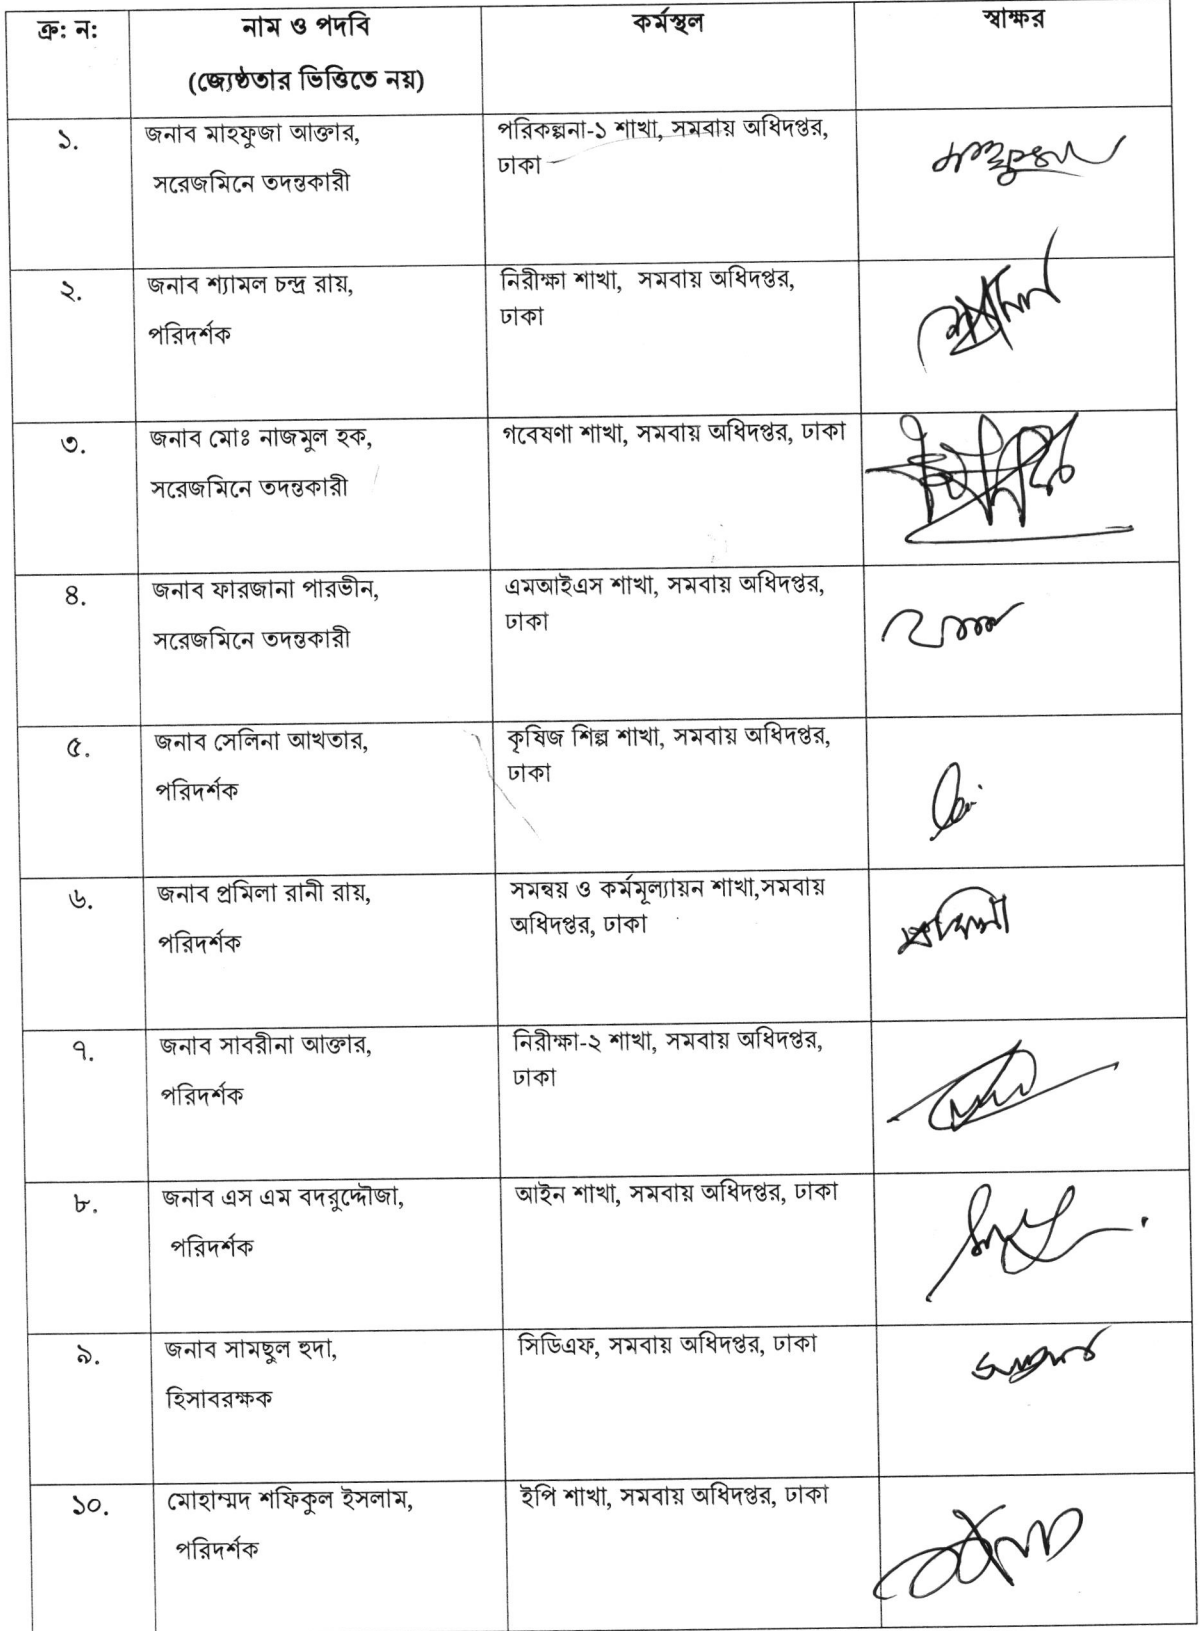 ক্র: ন:
নাম ও পদবি
(জ্যেষ্ঠতার ভিত্তিতে নয়)
কর্মস্থল
স্বাক্ষর
১.
জনাব মাহফুজা আক্তার,
সরেজমিনে তদন্তকারী
পরিকল্পনা-১ শাখা, সমবায় অধিদপ্তর,
ঢাকা
২.
জনাব শ্যামল চন্দ্র রায়,
পরিদর্শক
নিরীক্ষা শাখা, সমবায় অধিদপ্তর,
ঢাকা
৩.
জনাব মোঃ নাজমুল হক,
সরেজমিনে তদন্তকারী
গবেষণা শাখা, সমবায় অধিদপ্তর, ঢাকা
৪.
জনাব ফারজানা পারভীন,
সরেজমিনে তদন্তকারী
এমআইএস শাখা, সমবায় অধিদপ্তর,
ঢাকা
৫.
জনাব সেলিনা আখতার,
পরিদর্শক
কৃষিজ শিল্প শাখা, সমবায় অধিদপ্তর,
ঢাকা
৬.
জনাব প্রমিলা রানী রায়,
পরিদর্শক
সমন্বয় ও কর্মমূল্যায়ন শাখা,সমবায়
অধিদপ্তর, ঢাকা
প্রমিলা
৭.
জনাব সাবরীনা আক্তার,
পরিদর্শক
নিরীক্ষা-২ শাখা, সমবায় অধিদপ্তর,
ঢাকা
৮.
জনাব এস এম বদরুদ্দৌজা,
পরিদর্শক
আইন শাখা, সমবায় অধিদপ্তর, ঢাকা
৯.
জনাব সামছুল হুদা,
হিসাবরক্ষক
সিডিএফ, সমবায় অধিদপ্তর, ঢাকা
১০.
মোহাম্মদ শফিকুল ইসলাম,
পরিদর্শক
ইপি শাখা, সমবায় অধিদপ্তর, ঢাকা